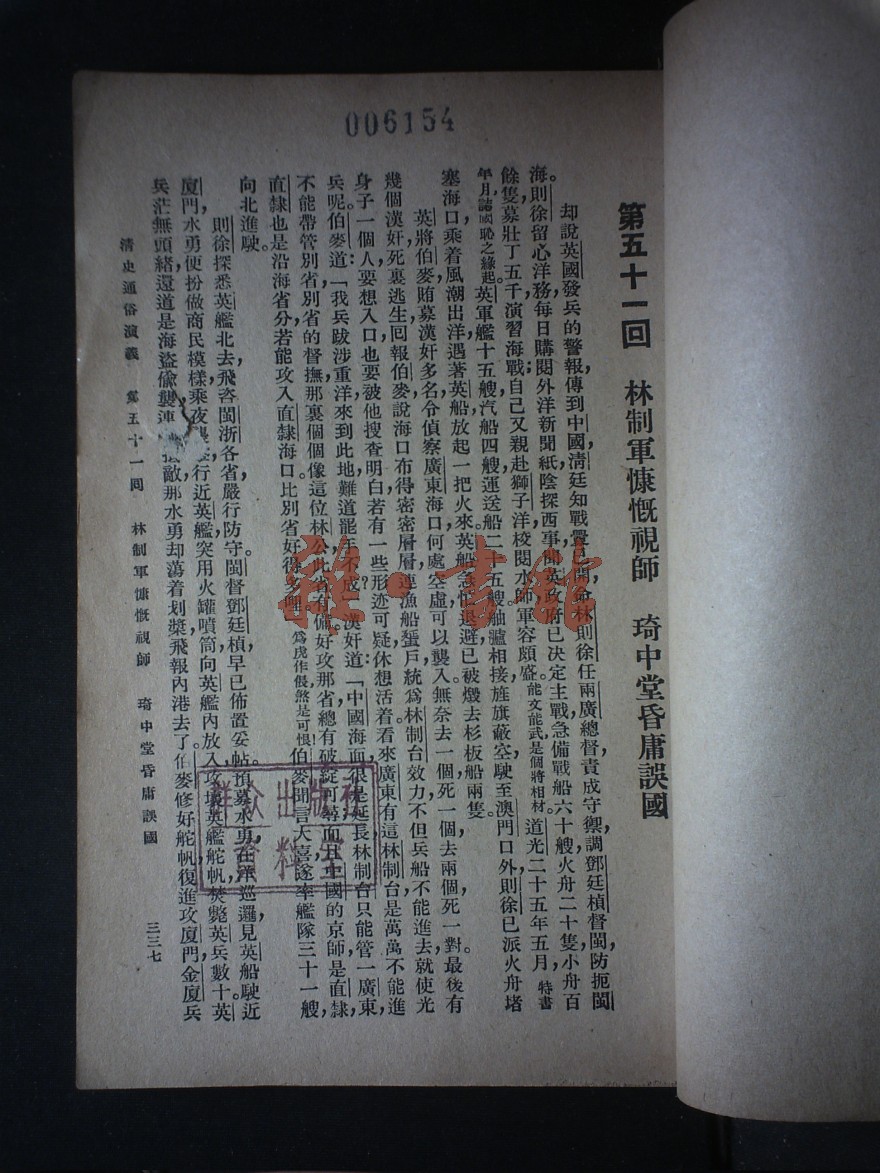 006154
第五十一回 林制軍慷慨視師 琦中堂昏庸誤國
却說英國發兵的警報，傳到中國，清廷知戰釁已開，命林則徐任兩廣總督，責成守禦；調鄧廷楨督閩，防扼閩
海。則徐留心洋務，每日購閱外洋新聞紙，陰探西事，聞英政府已決定主戰，急備戰船六十艘，火舟二十隻，小舟百
餘隻，募壯丁五千，演習海戰；自己又親赴獅子洋，校閱水師，軍容頗盛。能文能武，是個將相材。道光二十五年五月，特書
年月，誌國恥之緣起。英軍艦十五艘，汽船四艘，運送船二十五艘，舳艫相接，旌旗蔽空，駛至澳門口外，則徐已派火舟堵
塞海口，乘着風潮出洋，遇著英船，放起一把火來。英船急忙退避，已被燬去杉板船兩隻。
英將伯麥，賄募漢奸多名，令偵察廣東海口，何處空虛，可以襲入，無奈去一個，死一個，去兩個，死一對。最後有
幾個漢奸，死裏逃生，回報伯麥，說海口布得密密層層，連漁船蜑戶，統為林制台效力，不但兵船不能進去，就使光
身子一個人，要想入口，也要被他搜查明白，若有一些形迹可疑，休想活着。看來廣東有這林制台，是萬萬不能進
兵呢。伯麥道：「我兵跋涉重洋，來到此地，難道罷手不成？」漢奸道：「中國海面，很是延長，林制台只能管一廣東，
不能帶管別省，別省的督撫，那裏個個像這位林公，此省有備，好攻那省，總有破綻可尋，而且中國的京師，是直隸，
直隸也是沿海省分，若能攻入直隸海口，比別省好得多哩。為虎作倀，煞是可恨。伯麥聞言大喜，遂率艦隊三十一艘，
向北進駛。
則徐探悉英艦北去，飛咨閩浙各省，嚴行防守。閩督鄧廷楨，早已佈置妥帖，預募水勇，在洋巡邏，見英船駛近
廈門，水勇便扮做商民模樣，乘夜行近英艦，突用火罐噴筒，向英艦內放入，攻壞英艦舵帆，焚斃英兵數十。英
兵茫無頭緒，還道是海盜偷襲，連敵，那水勇却蕩着划槳，飛報內港去了。伯麥修好舵帆，復進攻廈門，金廈兵
清史通俗演義 第五十一回 林制軍慷慨視師 琦中堂昏庸誤國 三三七
群众出版社
資料室
雜·書館